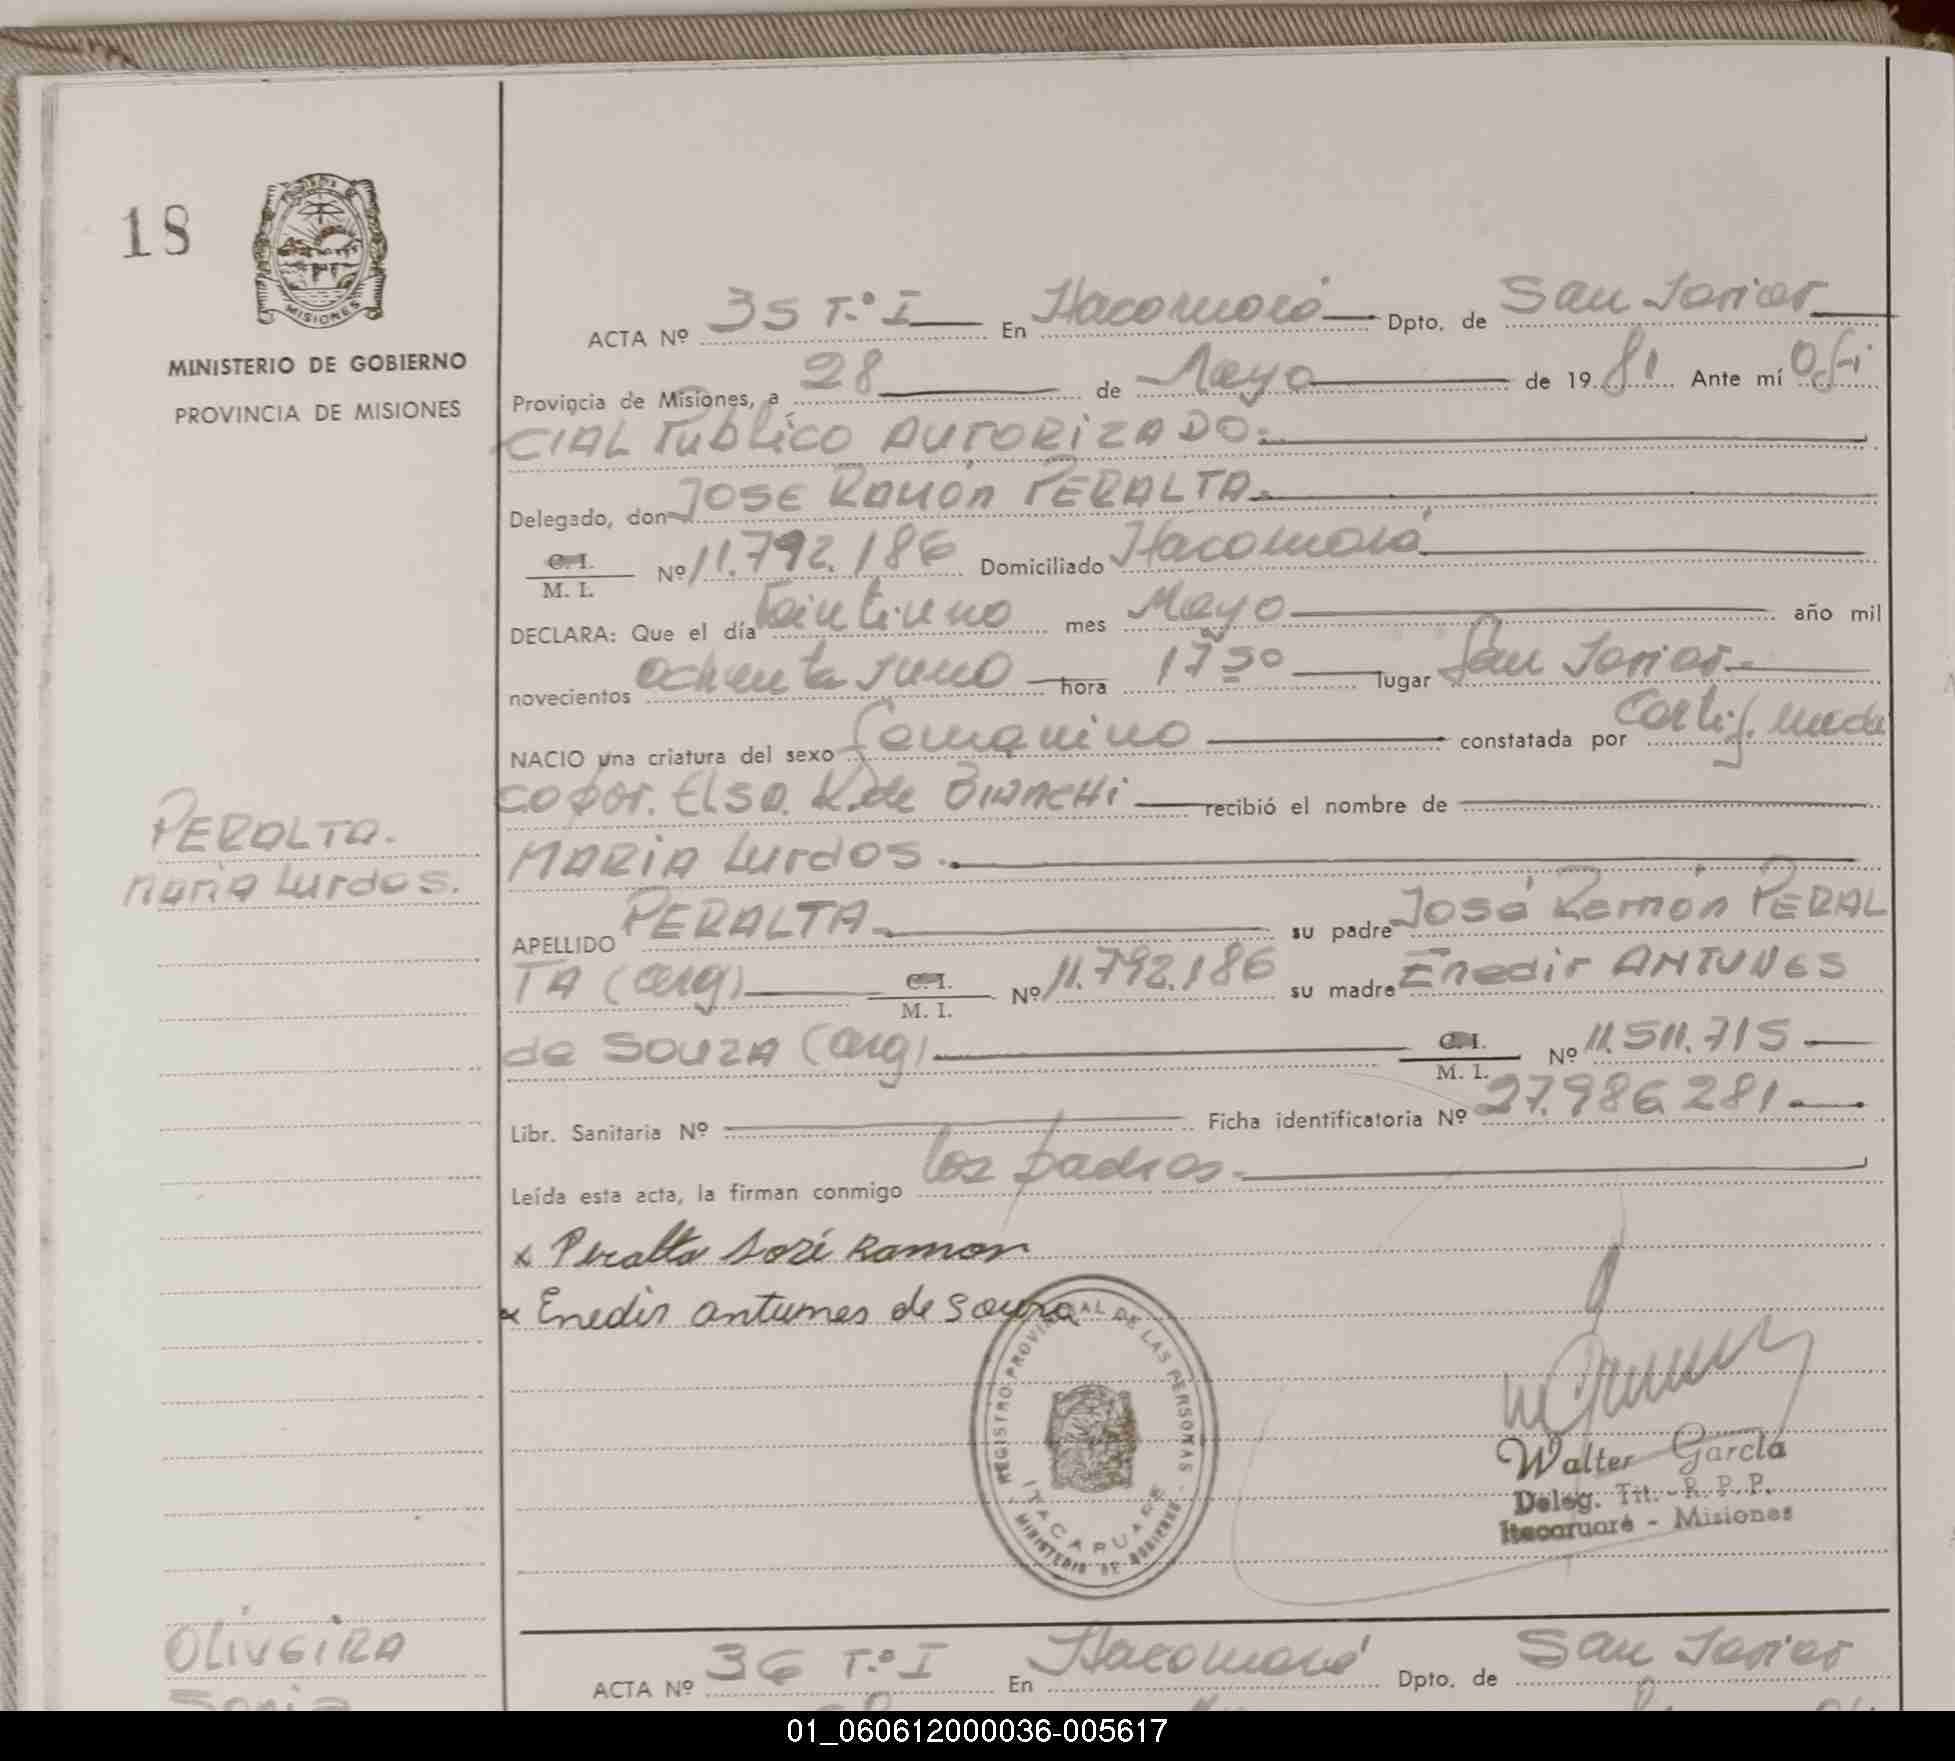 18
MISIONES
MINISTERIO DE GOBIERNO
PROVINCIA DE MISIONES
ACTA Nº 35 T.º I En Itacaruaré Dpto. de San Javier
Provincia de Misiones, a 28 de Mayo de 1981 Ante mí Ofi
CIAL Publico AUTORIZADO.
Delegado, don JOSE Ramón PERALTA.
C. I.
M. I. Nº 11.792.186 Domiciliado Itacaruaré
DECLARA: Que el día Veintiuno mes Mayo año mil
novecientos ochenta y uno hora 17 30 lugar San Javier.
NACIO una criatura del sexo Femenino constatada por Certif. medi
co por. Elsa. K. de BIANCHI recibió el nombre de
MARIA Lurdes.
PERALTA.
Maria Lurdes.
APELLIDO PERALTA. su padre José Ramón PERAL
TA (arg) C. I. M. I. Nº 11.792.186 su madre Enedir ANTUNES
de SOUZA (arg) C. I. M. I. Nº 11.511.715
Libr. Sanitaria Nº Ficha identificatoria Nº 27.986.281
Leída esta acta, la firman conmigo los padres.
x Peralta José Ramon
x Enedir antunes de Souza
REGISTRO PROVINCIAL DE LAS PERSONAS
ITACARUARE
MINISTERIO DE GOBIERNO
Walter García
Deleg. Tit. - R. P. P.
Itacaruaré - Misiones
OLIVEIRA
Sonia
ACTA Nº 36 T.º I En Itacaruaré Dpto. de San Javier
01_060612000036-005617